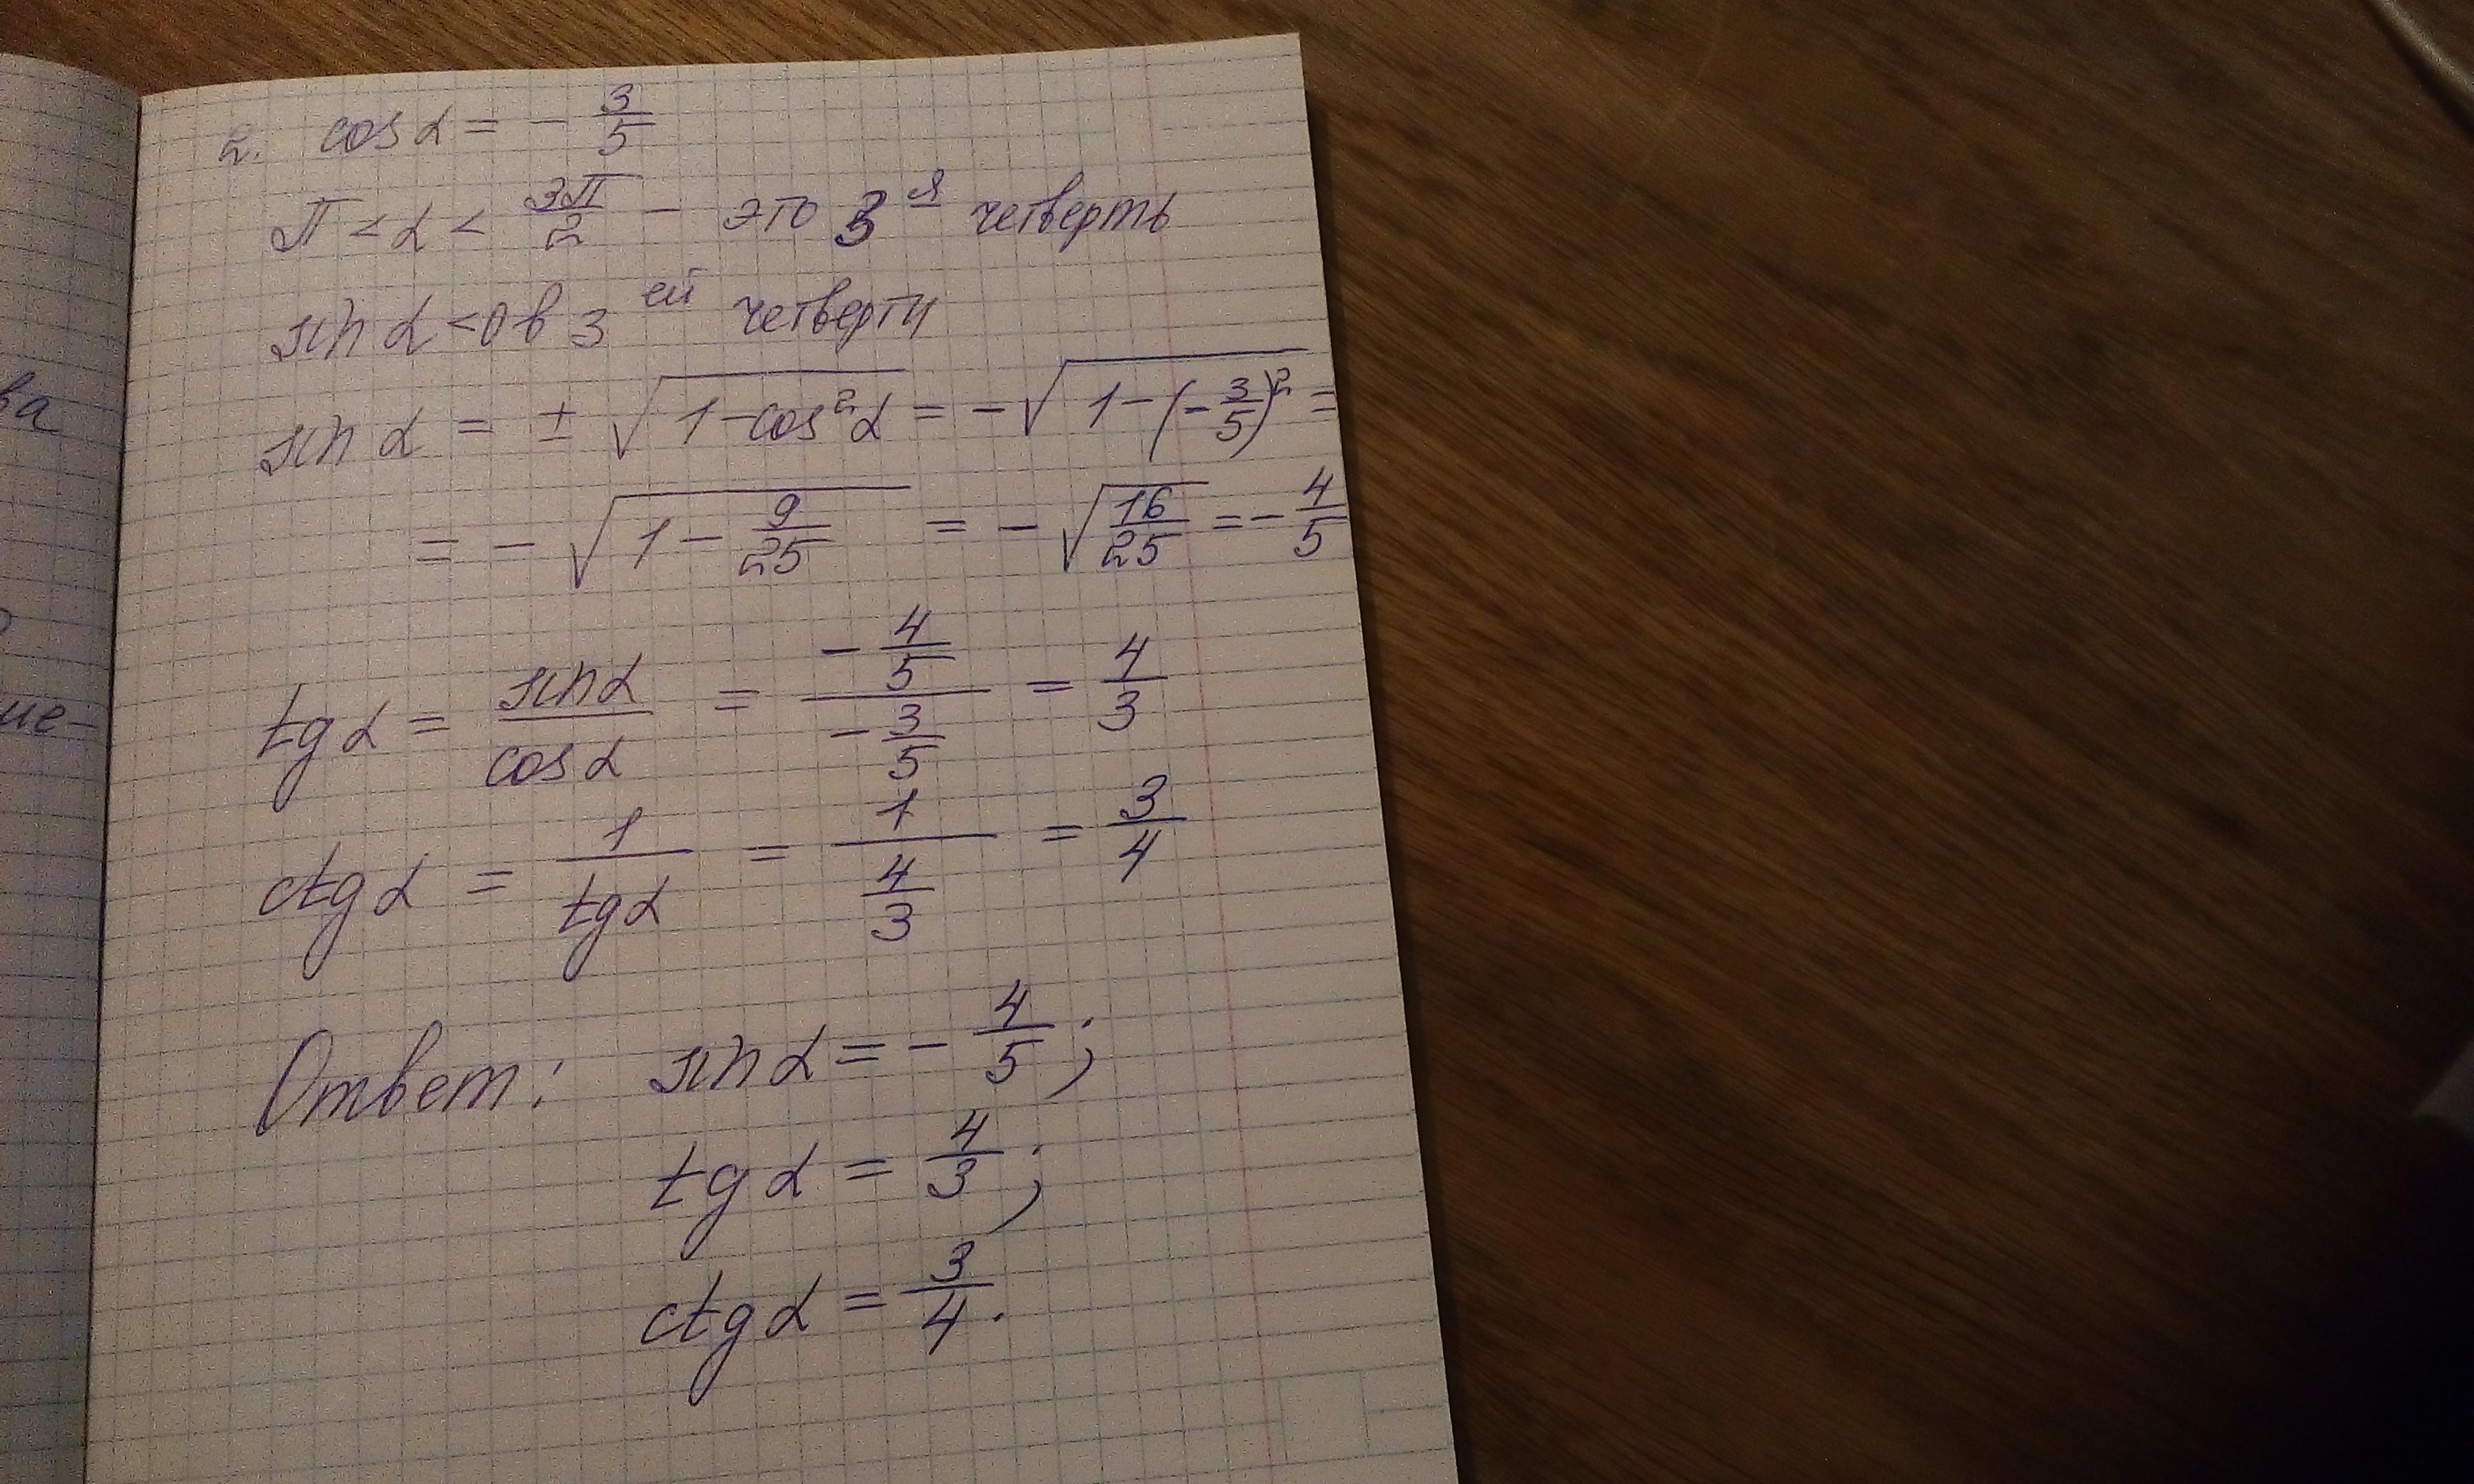 2. cos α = - 3/5
π < α < 3π/2 - это 3 я четверть
sin α < 0 в 3 ей четверти
sin α = ± √(1 - cos² α) = - √(1 - (- 3/5)²) =
= - √(1 - 9/25) = - √(16/25) = - 4/5
tg α = sin α / cos α = (- 4/5) / (- 3/5) = 4/3
ctg α = 1 / tg α = 1 / (4/3) = 3/4
Ответ: sin α = - 4/5 ;
tg α = 4/3 ;
ctg α = 3/4 .